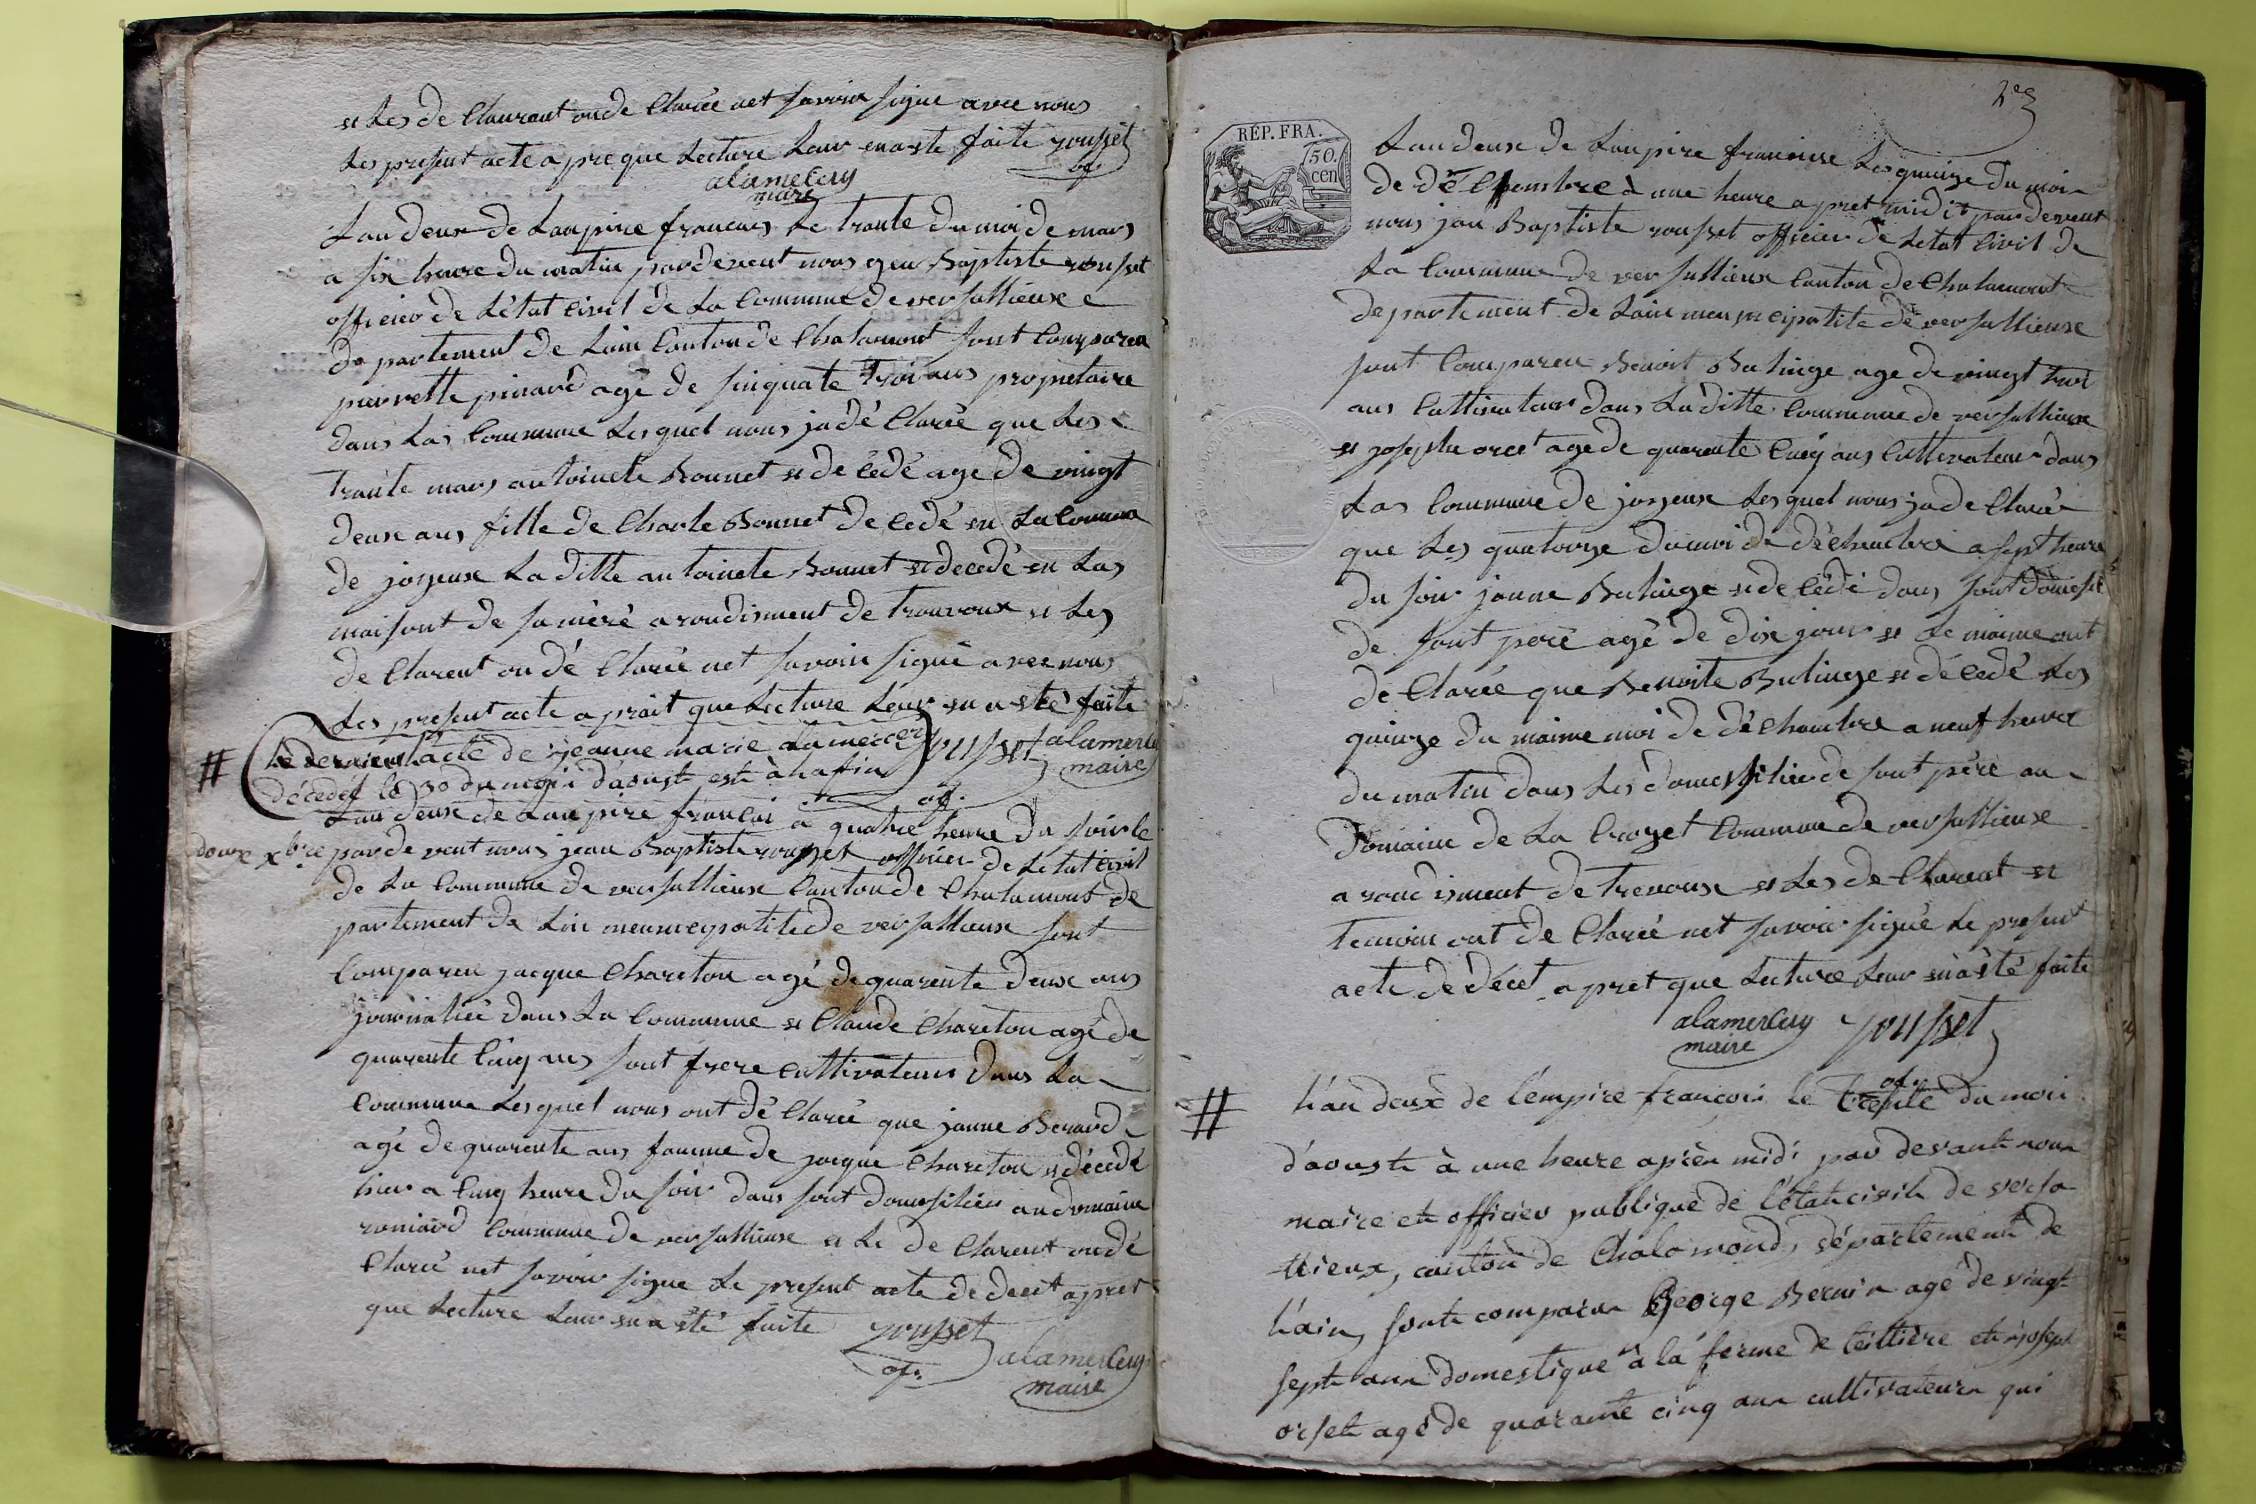 et Les de Clauront onde Clarée net Savoir Signe avec nous
Les present acte apre que Lecture Leur enaste faite rousset
of.
alamercery
maire
Lan deux de Lanpire francais Le trante du moi de mars
a six heure du matin pardevent nous jean Baptiste rousset
officier de Létat civil de La Commune de versallieux
departement de Lain Canton de Chalamont sont Comparea
pierrette pinard agé de sinquate Troi ans propietaire
dans Las Commune Lesquel nous ja dé Clarée que Les
trante mars antoinete Bonnet et de cedé age de vingt
deux ans fille de Charle Bonnet de cedé en La Commune
de joyeux La ditte antoinete Bonnet et decedé en Las
maisont de sa mère arondisment de trouvoux et Les
de Clarent on dé Clarée net Savoir Signé avec nous
Les present acte aprait que Lecture Leur en a sté faite
# (Le dernier acte de jeanne marie alamercery) rousset alamercery
décédéé le 30 du moi d'aoust est à la fin of. maire
Lan deux de Lanpire francai à quatre heure du soir le
douze xbre parde vent nous jean Baptiste rousset officier de Letat civil
de La Commune de versallieux Canton de Chalamont de
partement de Lin meunicipatite de versallieux sont
Comparen jacque Chareton agé de quarente deux ans
journalié dans La Commune et Claude Chareton agé de
quarente Cinq ans sont frere Cultivateur dans La
Commune Lesquel nous ont dé Clarée que janne Berard
agé de quarente ans famme de jacque Chareton et décedé
hier a Cinq heure du soir dans sont domesilier au domaine
roniard Commune de versallieux et Le de Clarent on dé
Claré net savoir signe Le present acte de decet apret
que Lecture Leur en a sté faite rousset
of. alamercery
maire
23
RÉP. FRA.
50.
cen
Lan deux de Lanpire francaise Les quinze du moi
de déChembre à une heure apret midit pardevent
nous jean Baptiste rousset officier de Letat Civil de
La Commune de versallieux Canton de Chalamont
departement de Lain meunicipatite de versallieux
sont Comparen Benoit Bulinge age de vingt troi
ans Cultivateur dans La ditte Commune de versallieux
et josephe orcet age de quarente Cinq ans Cultivateur dans
Las Commune de joyeux Lesquel nous ja de Clarée
que Les quatorze du moi de déChembre a sept heure
du soir janne Bulinge et de Cédé dans sont domesil
de sont peré agé de dix jour et de maime ont
de Clarée que Benoite Bulinge et dé Cedé Les
quinze du maime moi de déChembre a neuf heure
du matin dans Les domessilier de sont père au
Domaine de La Crozet Commune de versallieux
arondisment de trevoux et Les de Clarent et
temoin ont de Clarée net savoir signé Le present
acte de décet apret que Lecture Leur en a sté faite
alamercery rousset
maire of.
# l'an deux de l'empire françois le trente du mois
d'aouste à une heure après midi par devant nous
maire et officier publique de l'état civil de versa
-llieux, canton de Chalamond, département de
l'ain, sont comparus George Bernin agé de vingt
sept ans domestique à la ferme de teillière et joseph
orset agé de quarante cinq ans cultivateur qui